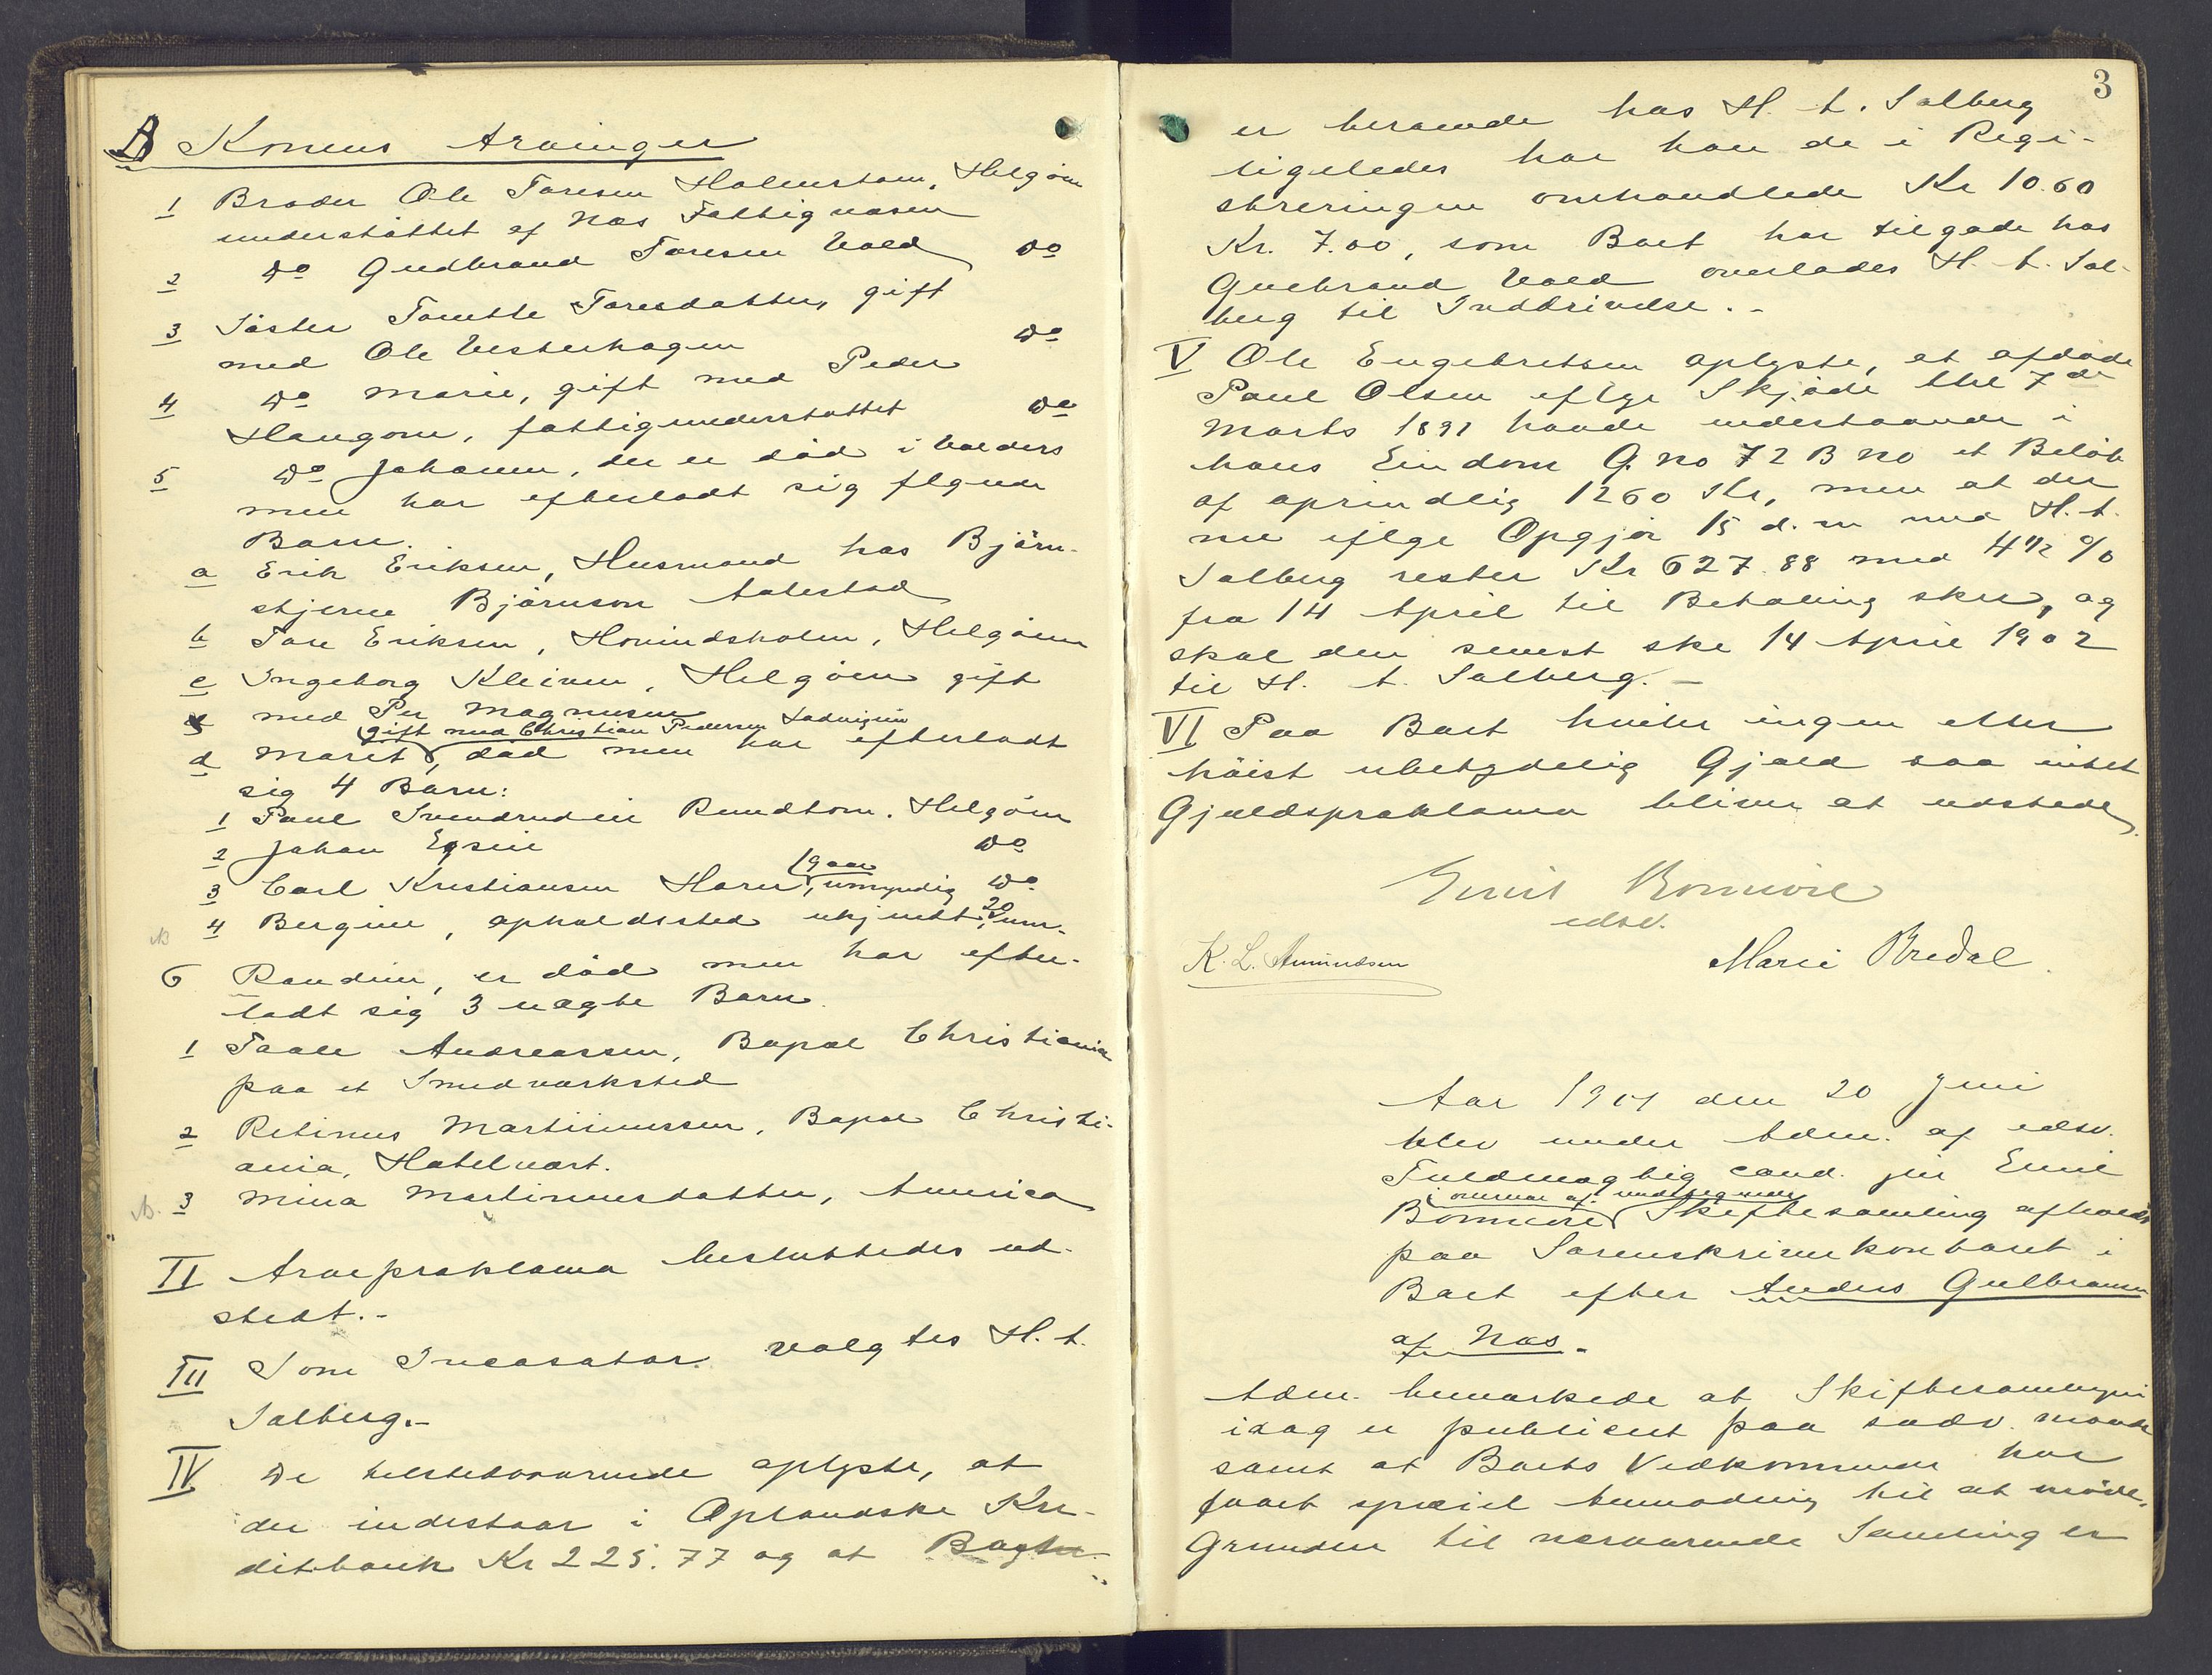 B Konens Arvinger
1 Broder Ole Toresen Holmstuen, Helgøen
understøttet af Næs Fattigvæsen
2 Do Gudbrand Toresen Vold Do
3 Søster Tomette Toresdatter, gift
med Ole Vesterhagen Do
4 Do Marie, gift med Peder
Haugom, fattigunderstøttet Do
5 Do Johanne, der er død i Valders
men har efterladt sig flgende
Børn.
a Erik Eriksen, Husmand hos Bjørn-
stjerne Bjørnson Aulestad
b Tore Eriksen, Hovindsholm, Helgøen
c Ingeborg Kleiven, Helgøen gift
med Per Magnusen
gift med Christian Pedersen
d Marit, død men har efterladt
sig 4 Børn:
1 Paul Rundtom. Helgøen
2 Johan Do
19 aar
3 Carl Kristiansen Horn, umyndig Do
4 Bergine, opholdssted ukjendt, 20 um.
6 Randine, er død men har efter-
ladt sig 3 uægte Børn.
1 Taale Andreassen, Bopæl Christiania
paa et Smedværksted
2 Retinus Martinussen, Bopæl Christi-
ania, Hotelvært.
3 Mina Martinusdatter, America
II Arveproklama besluttedes ud-
stedt.-
III Som Incasator valgtes H. A.
Solberg.-
IV De tilstedeværende oplyste, at
der indestaar i Oplandske Kre-
ditbank Kr 225.77 og at
3
er beroende hos H. A. Solberg
ligeledes har han de i Regi-
streringen omhandlede Kr 10.60
Kr. 7.00, som Boet har tilgode hos
Gudbrand Vold overlades H. A. Sol-
berg til Inddrivelse.-
V Ole Engebretsen oplyste, at afdøde
Paul Olsen iflge Skjøde thl 7de
Marts 1891 havde indestaaende i
hans Eiendom G. No 72 B No et Beløb
af oprindlig 1260 Kr, men at der
nu iflge Opgjør 15 d. m. med H. A.
Solberg rester Kr 627.88 med 4 1/2 %
fra 14 April til Betaling sker, og
skal den senest ske 14 April 1902
til H. A. Solberg.-
VI Paa Boet hviler ingen eller
høist ubetydelig Gjæld saa intet
Gjældsproklama bliver at udstede.
Emil Bonnevie
edsv.
K. L. Amundsen
Marie Bredal.
Aar 1901 den 20 Juni
blev under Adm. af edsv.
Fuldmægtig cand. jur Emil
i overvær af undtegnede
Bonnevie Skiftesamling afholdt
paa Sorenskriverkontoret i
Boet efter Anders Gulbransen
af Næs.
Adm. bemærkede at Skiftesamlingen
idag er publicert paa sædv. maade
samt at Boets Vedkommende har
faaet speciel Anmodning til at møde.
Grunden til nærværende Samling er